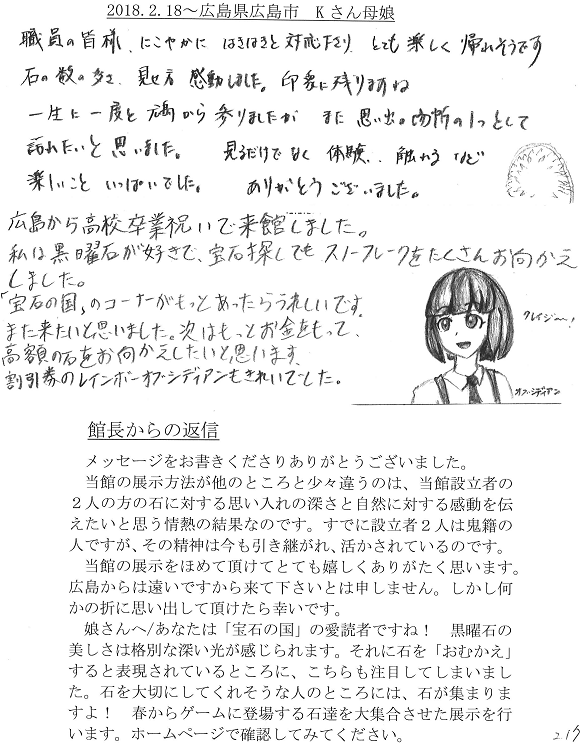 2018.2.18～広島県広島市　Kさん母娘
職員の皆様、にこやかに はきはきと対応下さり とても楽しく 帰れそうです
石の数の多さ、見せ方 感動しました。印象に残りますね
一生に一度と 広島から 参りましたが また 思い出の場所の1つとして
訪れたいと思いました。 見るだけでなく 体験、触れるなど
楽しいこと いっぱいでした。 ありがとう ございました。
広島から高校卒業祝いで来館しました。
私は黒曜石が好きで、宝石探しでも スノーフレークをたくさんお向かえ
しました。
「宝石の国」のコーナーがもっとあったらうれしいです。
また来たいと思いました。次はもっとお金をもって、
高額の石をお向かえしたいと思います。
割引券のレインボーオブシディアンもきれいでした。
クレイジ～!
オブシディアン
館長からの返信
メッセージをお書きくださりありがとうございました。
当館の展示方法が他のところと少々違うのは、当館設立者の
２人の方の石に対する思い入れの深さと自然に対する感動を伝
えたいと思う情熱の結果なのです。すでに設立者２人は鬼籍の
人ですが、その精神は今も引き継がれ、活かされているのです。
当館の展示をほめて頂けてとても嬉しくありがたく思います。
広島からは遠いですから来て下さいとは申しません。しかし何
かの折に思い出して頂けたら幸いです。
娘さんへ/あなたは「宝石の国」の愛読者ですね！　黒曜石の
美しさは格別な深い光が感じられます。それに石を「おむかえ」
すると表現されているところに、こちらも注目してしまいまし
た。石を大切にしてくれそうな人のところには、石が集まりま
すよ！　春からゲームに登場する石達を大集合させた展示を行
います。ホームページで確認してみてください。